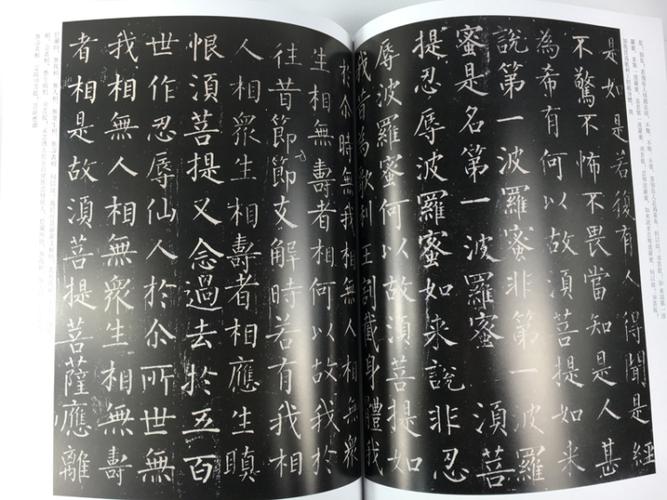 是如是若復有人得聞是經
不驚不怖不畏當知是人甚
為希有何以故須菩提如來
說第一波羅蜜非第一波羅
蜜是名第一波羅蜜須菩
提忍辱波羅蜜如來說非忍
辱波羅蜜何以故須菩提如
我昔為歌利王割截身體我
於尒時無我相無人相無衆
生相無壽者相何以故我於
往昔節節支解時若有我相
人相衆生相壽者相應生瞋
恨須菩提又念過去於五百
世作忍辱仙人於尒所世無
我相無人相無衆生相無壽
者相是故須菩提菩薩應離